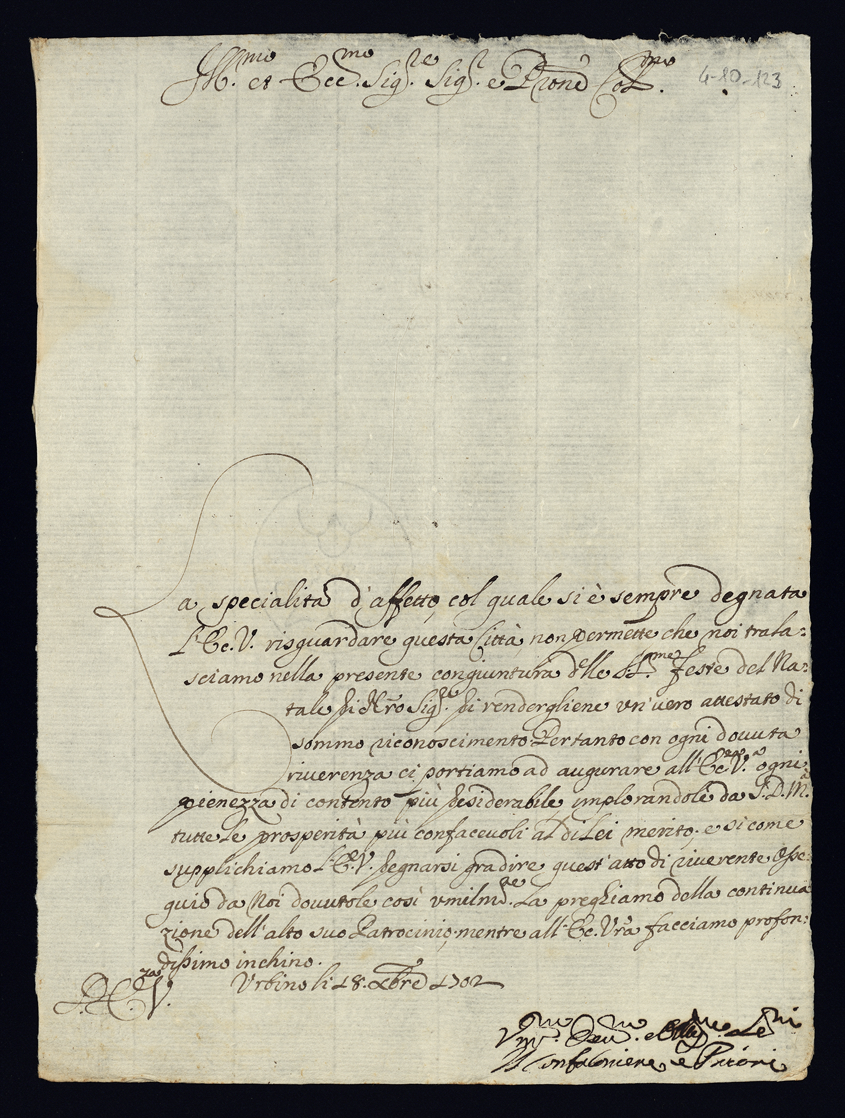 Ill.mo et Ecc.mo Sig.re Sig.r e Pron̄e Col.mo
4-10-123
La specialità d'affetto, col quale si è sempre degnata
L'Ec.V. risguardare questa Città non permette che noi trala:
sciamo nella presente congiuntura delle SS.me Feste del Na:
tale di Nr̄o Sig.re di rendergliene un'vero attestato di
sommo riconoscimento. Pertanto con ogni dovuta
riverenza ci portiamo ad augurare all'Ec.za V.a ogni
pienezza di contento più desiderabile implorandole da S.D.M.
tutte le prosperità più confacevoli al di Lei merito; e si come
supplichiamo L'E.V. degnarsi gradire quest'atto di riverente osse:
quio da Noi dovutole così umilm.te La preghiamo della continua:
zione dell'alto suo Patrocinio; mentre all'Ec. Vr̄a facciamo profon:
dissimo inchino.
Urbino li 18. Xbre 1702
D. V. E.za
Um.mi Dev.mi e Obb.mi Se.ri
Il Confaloniere e Priori